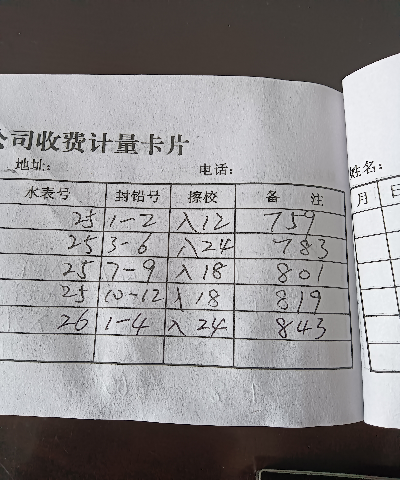 公司收费计量卡片
地址: 电话:
水表号 封铅号 擦校 备 注
25 1-2 入12 759
25 3-6 入24 783
25 7-9 入18 801
25 10-12 入18 819
26 1-4 入24 843
姓名:
月 日